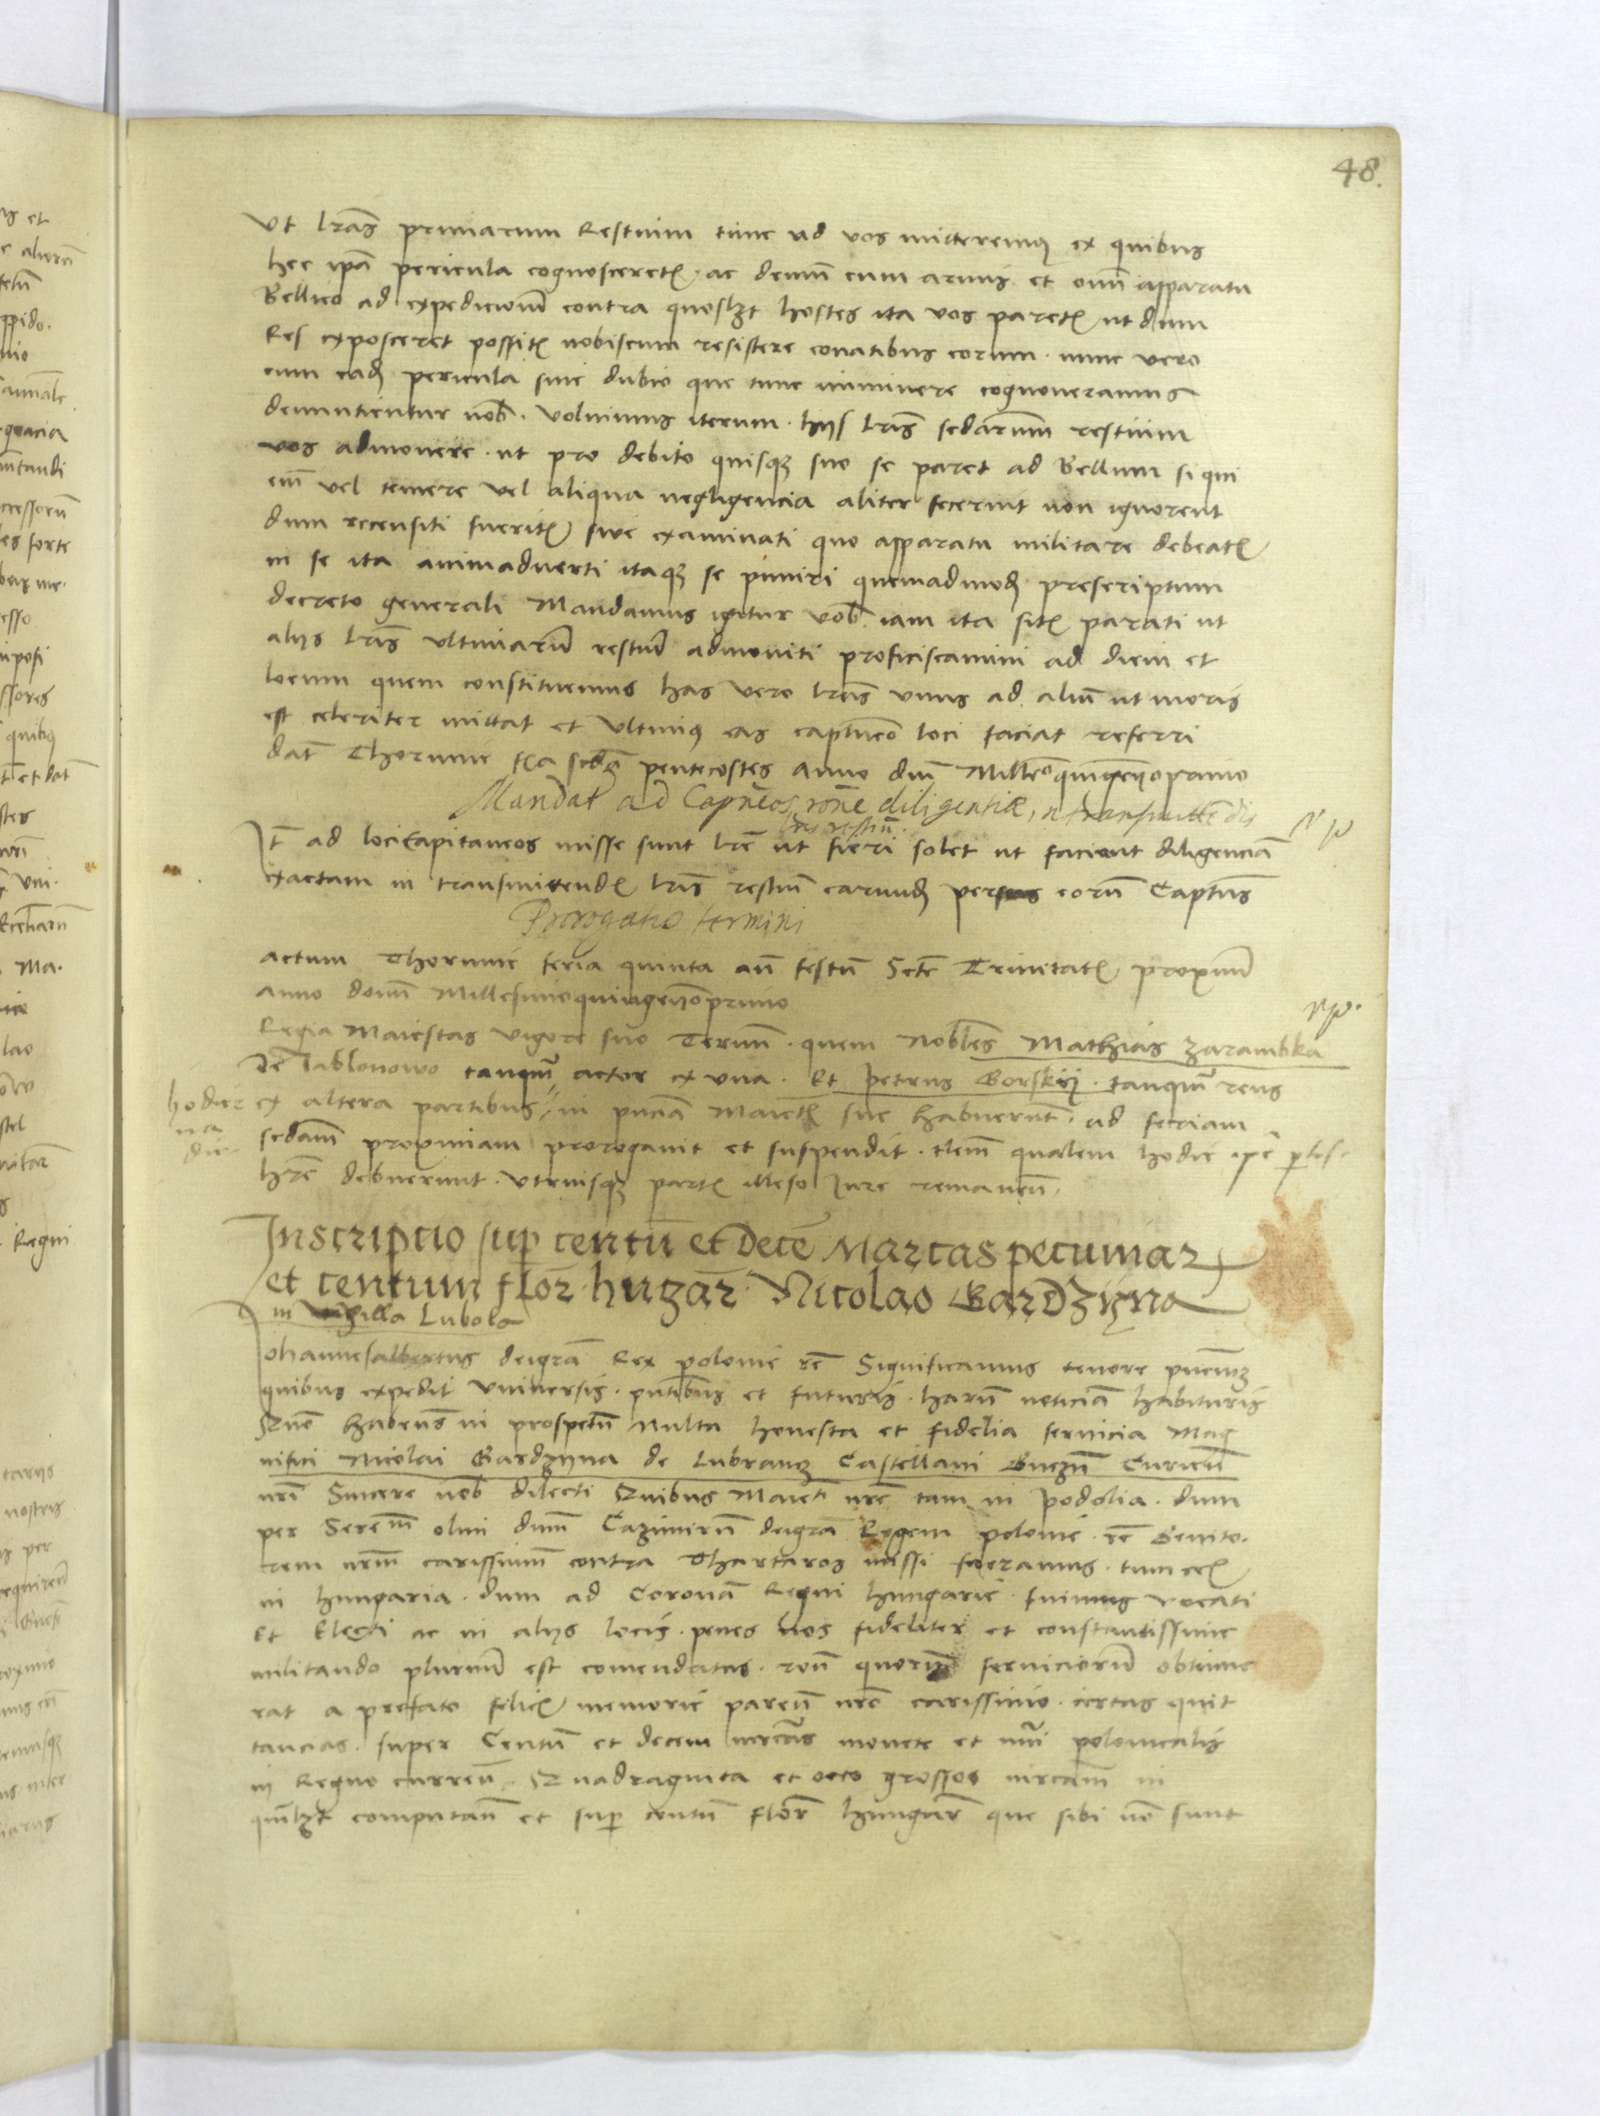 48.
Ut lrās primarum Restium tunc ad vos mitteremus ex quibus
hec ipā pericula cognosceretis. ac demū cum armis et omī apparatu
Bellico ad expedicionē contra quoslzt hostes ita vos paretis ut dum
Res exposceret possitis nobiscum resistere conatibus eorum. nunc vero
cum eadē pericula sine dubio que tunc iminere cognoveramus
denuncientur nob. Volumus iterum. hijs lrīs sedarum restium
vos admonere. ut pro debito quisqz suo se paret ad Bellum si qui
em̄ vel temere vel aliqua negligencia aliter fecerint non ignorent
dum recensiti fuerītis sive examinati quo apparatu militare debeatis
in se ita animadverti itaqz se puniri quemadmodū prescriptum
decreto generali Mandamus igitur vob. iam ita sitis parati ut
alijs lrīs ultimarū restiū admoniti proficiscamini ad diem et
locum quem constituemus has vero lrās unus ad aliū ut moris
est celeriter mittat et ultimus eas captūeo loci faciat referri
dat̄ Thorunie fēia scdā pentecostes Anno dnī Millēoquingenioprimo
Mandat ad Capneos rōne diligentiæ, in transmittēdis
lris restiū.
It̄ ad loci Capitaneos misse sunt lrē ut fieri solet ut faciant diligenciā
exactam in transmittendis lrīs restiū earundē per eorū Captūs
Prorogatio termini
Actum Thorunie feria quinta an̄ festū Scte Trinitatis proximū
Anno domī Millesimoquingenoprimo
Regia Maiestas vigore suo Termī. quem Nobles Mathias Zarambka
De Iablonowo tanquā actor ex una. Et petrus Gorskij. tanquā reus
hodier
na
die
ex altera partibus in pn̄cia Maietis sue habuerunt. ad feriam
sedam proximam prorogavit et suspendit. tlem qualem hodie ipē ptes.
hrē debuerunt. Utriusqz partis illeso Jure remanen̄.
Inscripcio sup centū et Decē Marcas pecuniar
et centum flor hugar Nicolao Gardzijna
in villa Lubola
Johannesalbertus deigrā Rex polonie rē Significamus tenore pn̄cium
quibus expedit Universis. pn̄tibus et futuris. harū noticiā habituris
Quō habens in prospectū Multa honesta et fidelia servicia Mag
nifici Nicolai Gardzijna de Lubranz Castellani Gnezn̄ Curien̄
nrī Sincere nob dilecti Quibus Maieti nrē tam in podolia. dum
per Serem olim dnm̄ Cazimirū deigrā Regem polonie. rē Genito.
rem nrm̄ carissimū contra Thartaros missi fueramus. tum ecis
in hungaria. dum ad Coronā Regni hungarie fuimus vocati
Et Electi ac in alijs locis. penes nos fideliter et constantissime
militando plurimū est comendatus. ronē quorum serviciorū obtinue
rat a prefato felicis memorie paren̄ nrō carissimo. certas quit
tancias. super Centū et decem mrcas monete et nūi polonicalis
in Regno curren̄ Quadraginta et octo grossos mrcam in
qūlzt computan̄ et sup centū flor hungar que sibi nō sunt